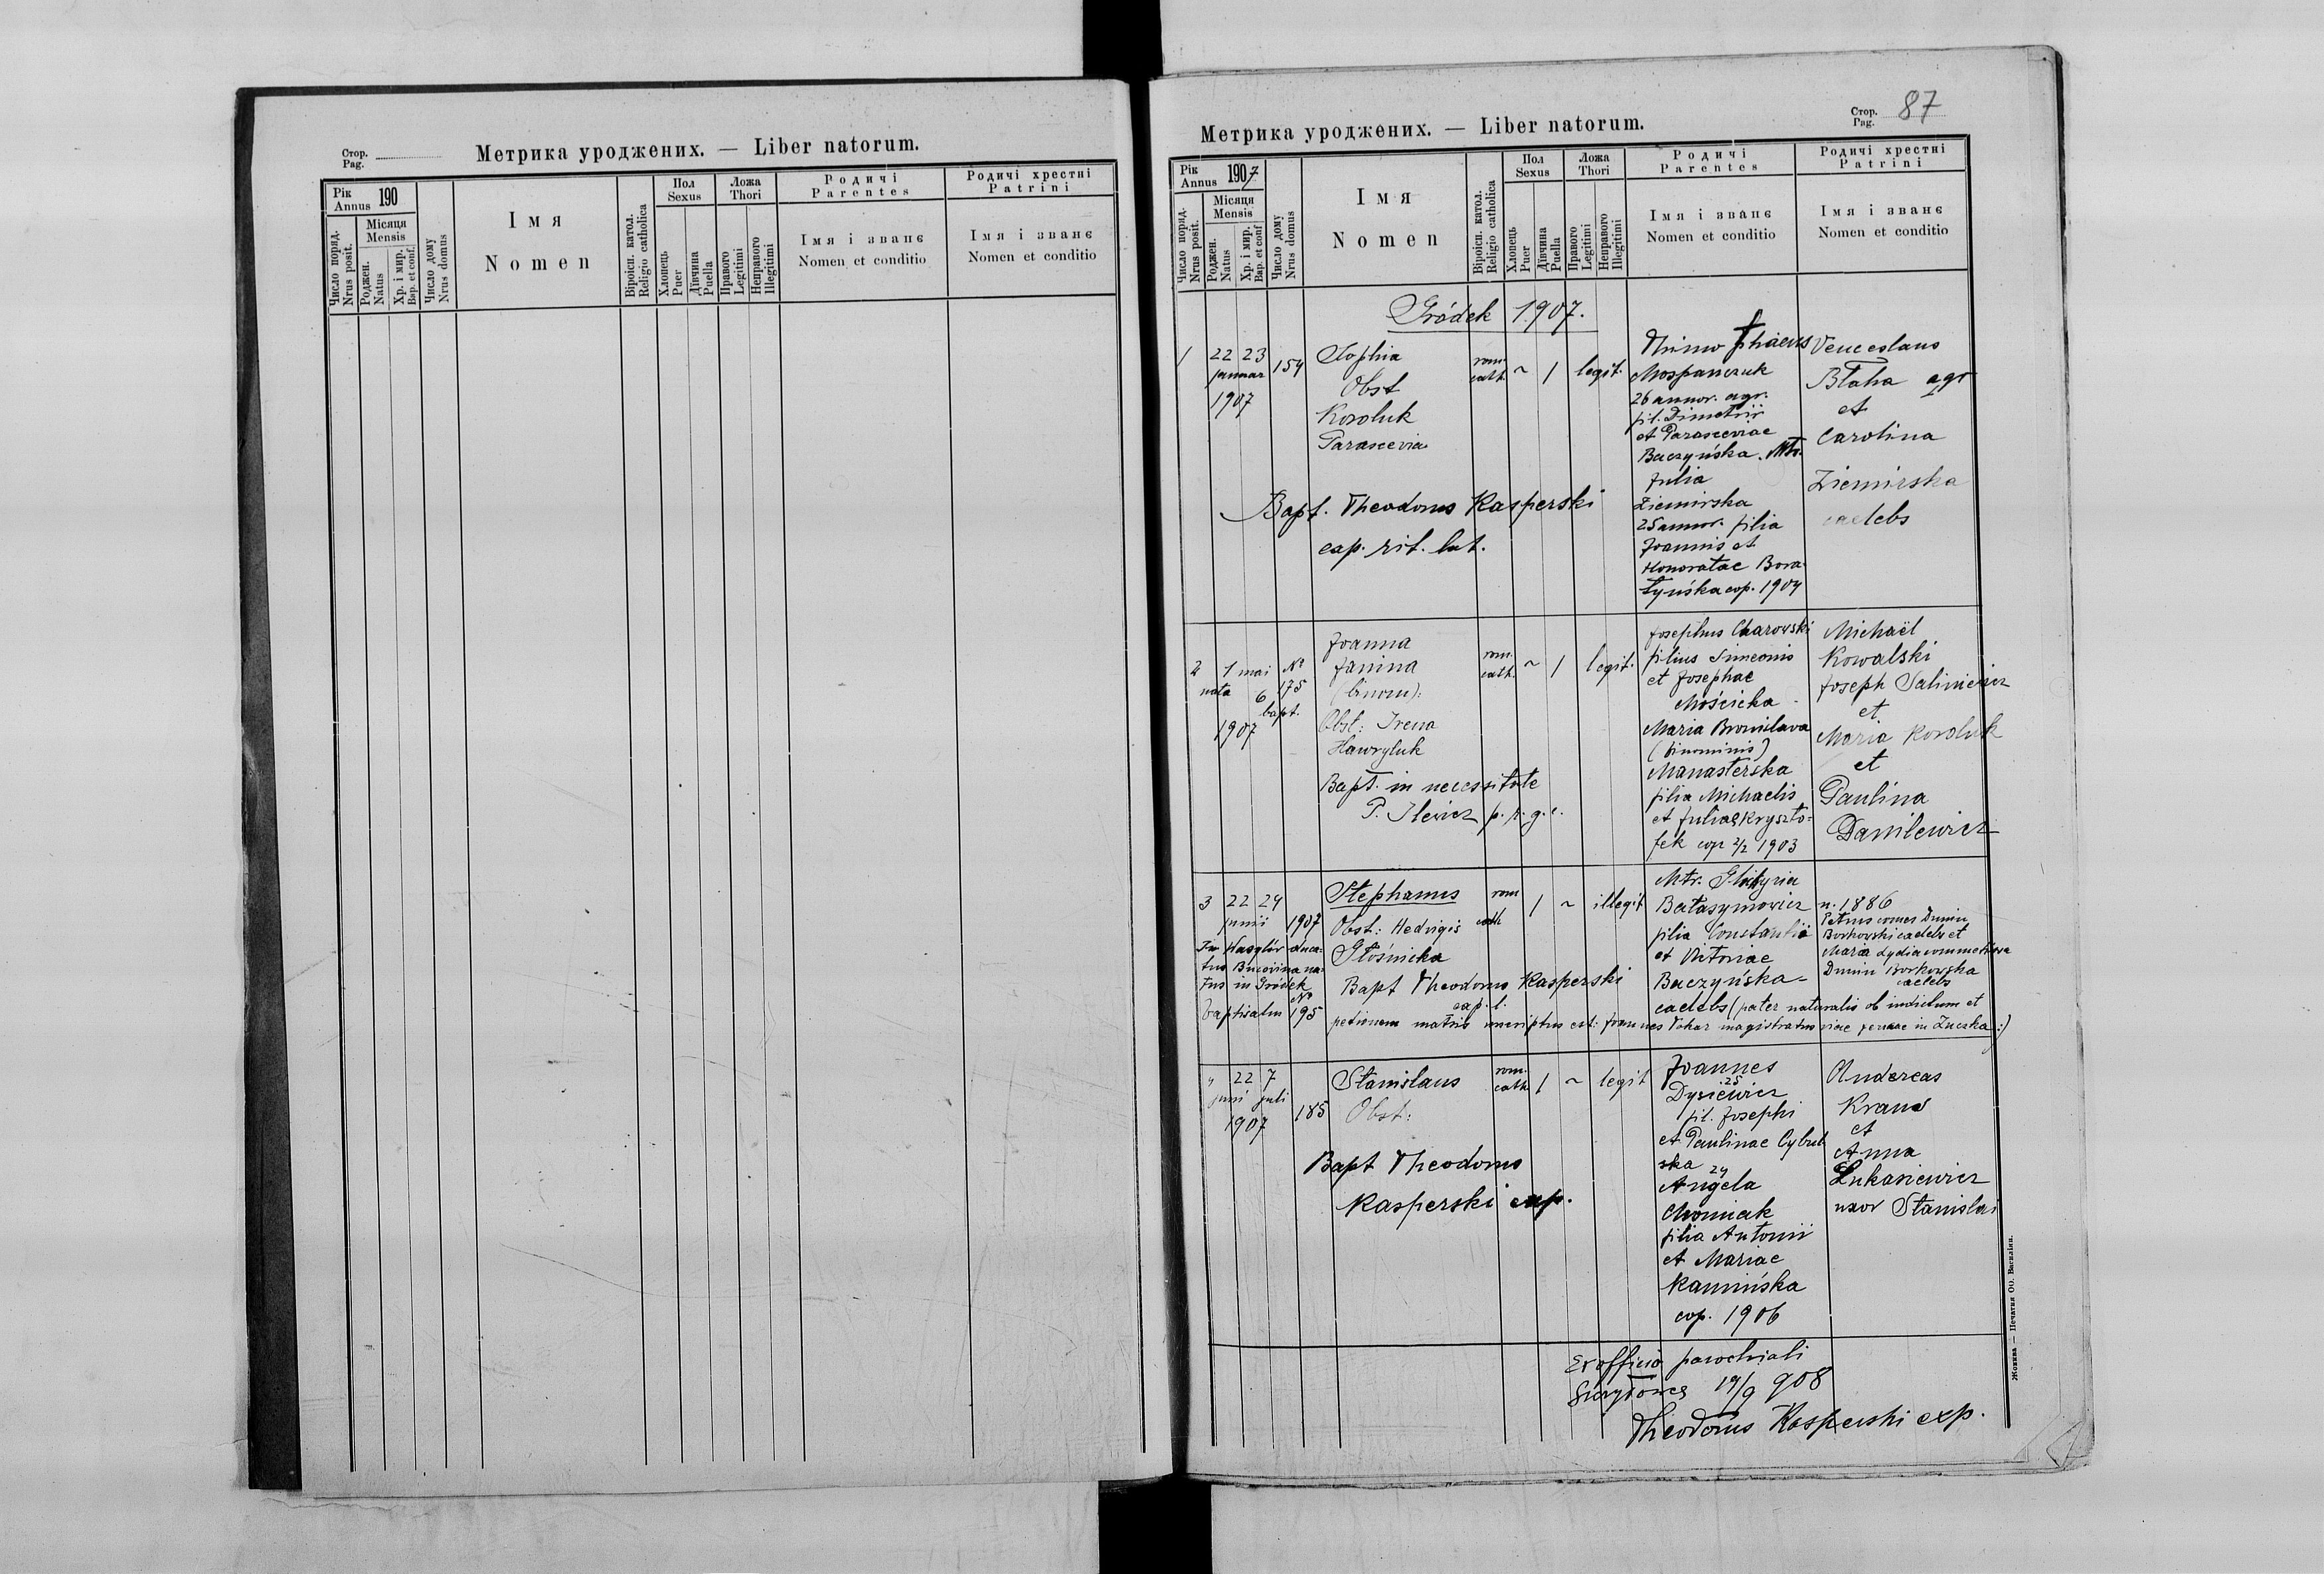 Стор.
Pag.
Метрика уроджених. — Liber natorum.
Рік
Annus 190
Число поряд.
Nrus posit.
Місяця
Mensis
Роджен.
Natus
Хр. і мир.
Bap. et conf.
Число дому
Nrus domus
Імя
Nomen
Віроісп. катол.
Religio catholica
Пол
Sexus
Хлопець
Puer
Дівчина
Puella
Ложа
Thori
Правого
Legitimi
Неправого
Illegitimi
Родичі
Parentes
Імя і званє
Nomen et conditio
Родичі хрестні
Patrini
Імя і званє
Nomen et conditio
Стор.
Pag. 87
Метрика уроджених. — Liber natorum.
Рік
Annus 1907
Число поряд.
Nrus posit.
Місяця
Mensis
Роджен.
Natus
Хр. і мир.
Bap. et conf
Число дому
Nrus domus
Імя
Nomen
Віроісп. катол.
Religio catholica
Пол
Sexus
Хлопець
Puer
Дівчина
Puella
Ложа
Thori
Правого
Legitimi
Неправого
Illegitimi
Родичі
Parentes
Імя і званє
Nomen et conditio
Родичі хрестні
Patrini
Імя і званє
Nomen et conditio
Gródek 1907.
1
22 23
januar
1907
154
Sophia
Obst
Koroluk
Parascevia
rom.
cath.
~ 1 legit.
Mospanczuk
26 annor. agr.
fil. Dimetrii
et Parasceviae
Baczyńska. Mtr.
Julia
Ziemirska
25 annor. filia
Joannis et
Honoratae Bora
tyńska cop. 1904
Venceslaus
Błaha agr
et
Carolina
Ziemirska
caelebs
Bapt. Theodorus Kasperski
exp. rit. lat.
2
1 mai
nata 6
bapt.
1907
No
175
Joanna
Janina
(binom):
Obst: Irena
Hawryluk
Bapt. in necessitate
P. Ilewicz p. r. g. c.
rom.
cath.
~ 1 legit.
Josephus Charowski
filius Simeonis
et Josephae
Mościcka
Maria Bronislava
(binominis)
Manasterska
filia Michaelis
et Juliae Kryszto=
fek cop 2/2 1903
Michaël
Kowalski
Joseph Saliniewicz
et
Maria Koroluk
et
Paulina
Danilewicz
3
22 24
junii 1907
tus in Gródek
baptisatus
No
195
Stephanus
Obst: Hedvigis
Głośnicka
Bapt Theodorus Kasperski
exp. l.
rom
cath
1 ~ illegit
Batasymowicz
filia Constantii
et Victoriae
Baczyńska-
caelebs (pater naturalis ob indictum et
petionem matris inscriptus est: Joannes Tokar magistratus viae ferreae in Zuczka:)
n. 1886
Petrus comes Dunin
Borkowski caelebs et
Maria Lydia
Dunin Borkowska
caelebs
"
22 7
juni juli
1907
185
Stanislaus
Obst:
Bapt Theodorus
Kasperski exp.
rom.
cath
1 ~ legit
Joannes
25
Dysiewicz
fil. Josephi
et Paulinae Cybul
ska
24
Angela
Chomiak
filia Antonii
et Mariae
Kamińska
cop. 1906
Andereas
Kraus
et
Anna
Łukasiewicz
uxor Stanislai
Ex officio parochiali
19/9 908
Theodorus Kasperski exp.
Жовква — Печатня ОО. Василіян.